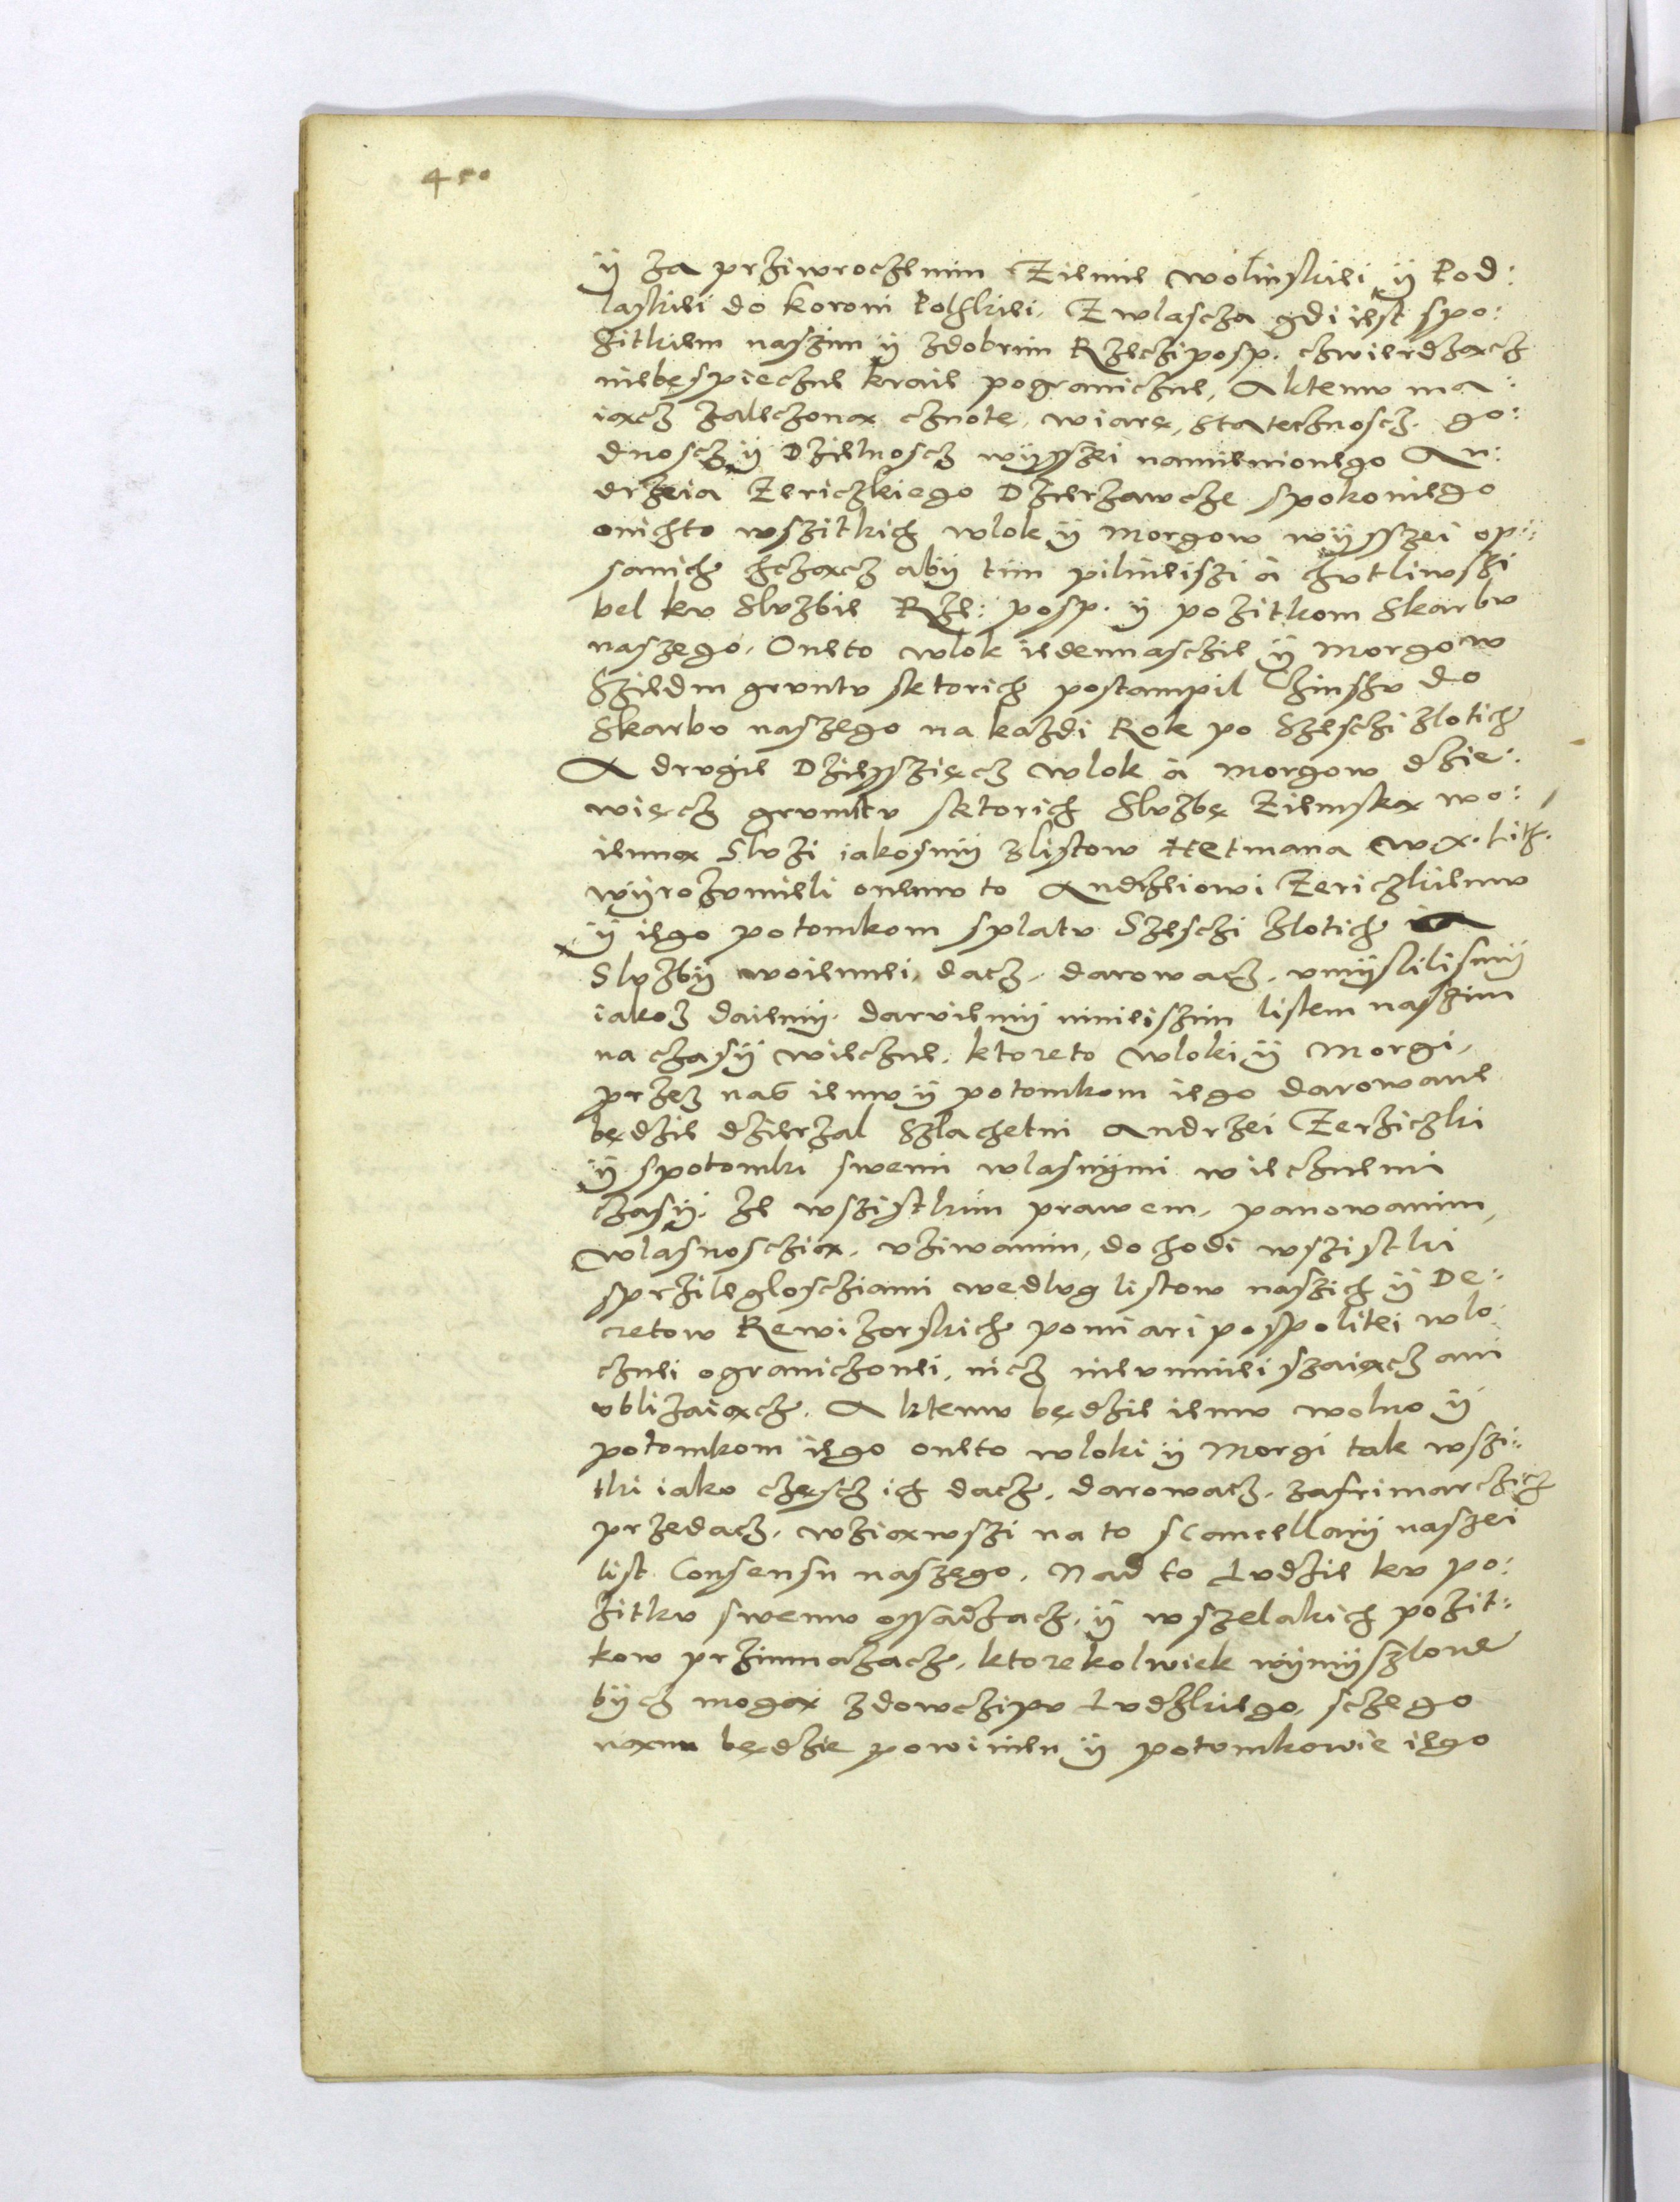 450
ÿ za prziwroczenim Ziemie wolinskiei ÿ Pod:
laskiei do Koroni Polskiei, Zwlascza gdi iest spo:
zitkiem naszim ÿ zdobrim Rzecziposp. czwierdzącz
niebęspieczne kraie pograniczne, Aktemu ma:
iącz zaleczoną cznotę, wiarę, statecznoscz. go:
dnoscz ÿ Dzielnoscz wÿsszei namienionego An:
drzeia Zericzkiego Dzierzawcze spokoniego
onichto wszitkich wlok ÿ Morgow wÿsszei op:
sanich chcząncz abÿ tim pilnieiszi à chutliwszi
bel ku Sluzbie Rze: posp. ÿ pozitkom Skarbu
naszego. Oneto wlok iedennasczie ÿ Morgow
Sziedm gruntu sktorich postampil Czinszu do
Skarbu naszego na kazdi Rok po Szesczi zlotich
A drugie Dziesszięcz wlok à morgow dzie:
więcz gruntu sktorich Sluzbę Ziemską wo:
ienną Sluzi iakosmÿ zlistow Hetmana W. X. Lith.
wÿrozumieli onemu to Andrzeiowi Zericzkiemu
ÿ iego potomkom splatu Szesczi zlotich
Sluzbÿ woiennei, dacz, darowacz, umÿslilismÿ
iakoz daiemÿ, daruiemÿ ninieiszim listem naszim
na czasÿ wieczne, ktoreto wloki ÿ Morgi,
przez nas iemu ÿ potomkom iego darowane
będzie dzierzal Szlachetni Andrzei Zerziczki
ÿ spotomki swemi wlasnÿmi wiecznemi
czasÿ, ze wszistkim prawem, panowanim,
wlasnosczią, uziwanim, dochodi wszistki
sprzileglosciami wedlug listow naszich ÿ De:
cretow Rewizorskich pomiari pospolitei wlo:
cznei ograniczonei, nicz nieumnieiszaiącz ani
ubliżaiącz. Aktemu będzie iemu wolno ÿ
potomkom iego oneto wloki ÿ Morgi tak wszi:
tki iako częscz ich dacz, darowacz, zafrimarczicz
przedacz, wziąwszi na to sCancellariÿ naszei
list Consensu naszego, Nad to Ludzie ku po:
zitku swemu ossadzacz, ÿ wszelakich pozit:
kow przimnazacz, ktorekolwiek wÿmÿszlone
bÿcz mogą zdowczipu Ludzkiego, sczego
nam będzie powinien ÿ potomkowie iego